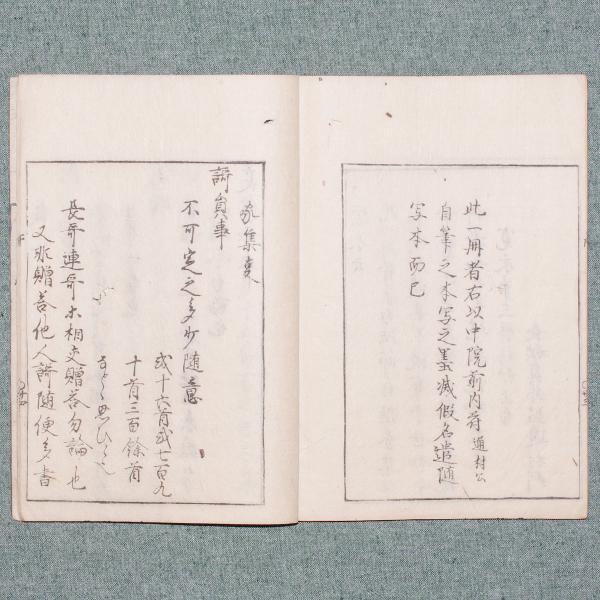 此一冊者右以中院前内府通村公
自筆之本写之墨減假名遣随
写本而已
家集事
謌員事
不可定之多少随意
或十六首或七百九
十首三百餘首
長哥連哥等相交贈答勿論也
又非贈答他人謌随便多書